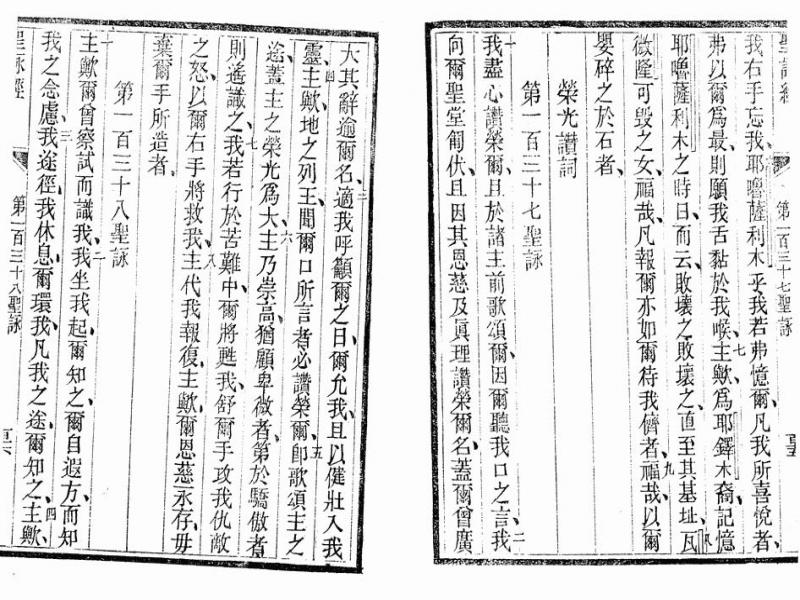 聖詠經 第一百三十七聖詠
我右手忘我、耶嚕薩利木乎、我若弗憶爾、凡我所喜悅者、
弗以爾爲最、則願我舌黏於我喉、七主歟、爲耶鐸木裔、記憶
耶嚕薩利木之時日、而云、敗壞之、敗壞之、直至其基址、八瓦
微隆可毀之女、福哉、凡報爾亦如爾待我儕者、九福哉、以爾
嬰碎之於石者、
榮光讚詞
第一百三十七聖詠
一我盡心讚榮爾、且於諸主前歌頌爾、因爾聽我口之言、二我
向爾聖堂匍伏、且因其恩慈及眞理讚榮爾名、蓋爾曾廣
大其辭逾爾名、三適我呼籲爾之日、爾允我、且以健壯入我
靈、四主歟、地之列王聞爾口所言者、必讚榮爾、五卽歌頌主之
途、蓋主之榮光爲大、六主乃崇高、猶顧卑微者、第於驕傲者
則遙識之、七我若行於苦難中、爾將甦我、舒爾手攻我仇敵
之怒、以爾右手將救我、八主代我報復、主歟、爾恩慈永存、毋
棄爾手所造者、
第一百三十八聖詠
一主歟、爾曾察試而識我、二我坐我起、爾知之、爾自遐方而知
我之念慮、三我途徑、我休息、爾環我、凡我之途、爾知之、四主歟、
聖詠經 第一百三十八聖詠